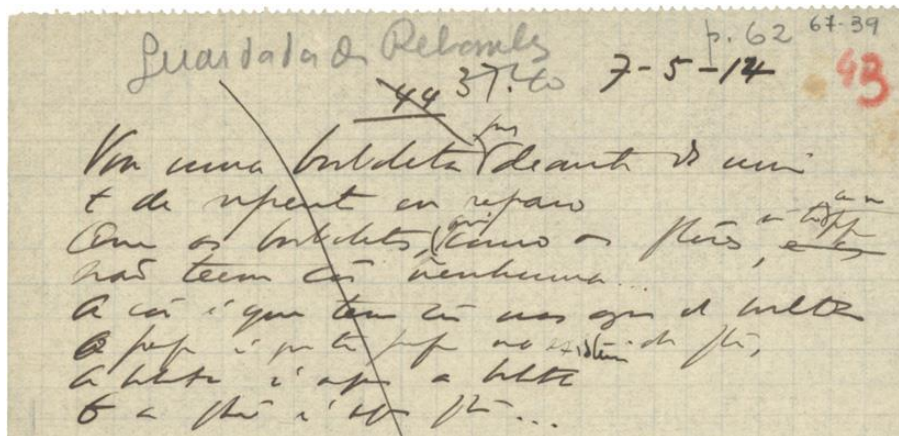 Guardador de Rebanhos p. 62 67-39
44 37.40 7-5-14 43
uma borboleta por deante de mim
E de repente eu reparo
as borboletas, como as flores,
não teem côr nenhuma...
A côr é que tem côr nas azas da borboleta
O perfume é que tem perfume no da flôr,
A borboleta é apenas a borboleta
E a flôr é apenas flôr...